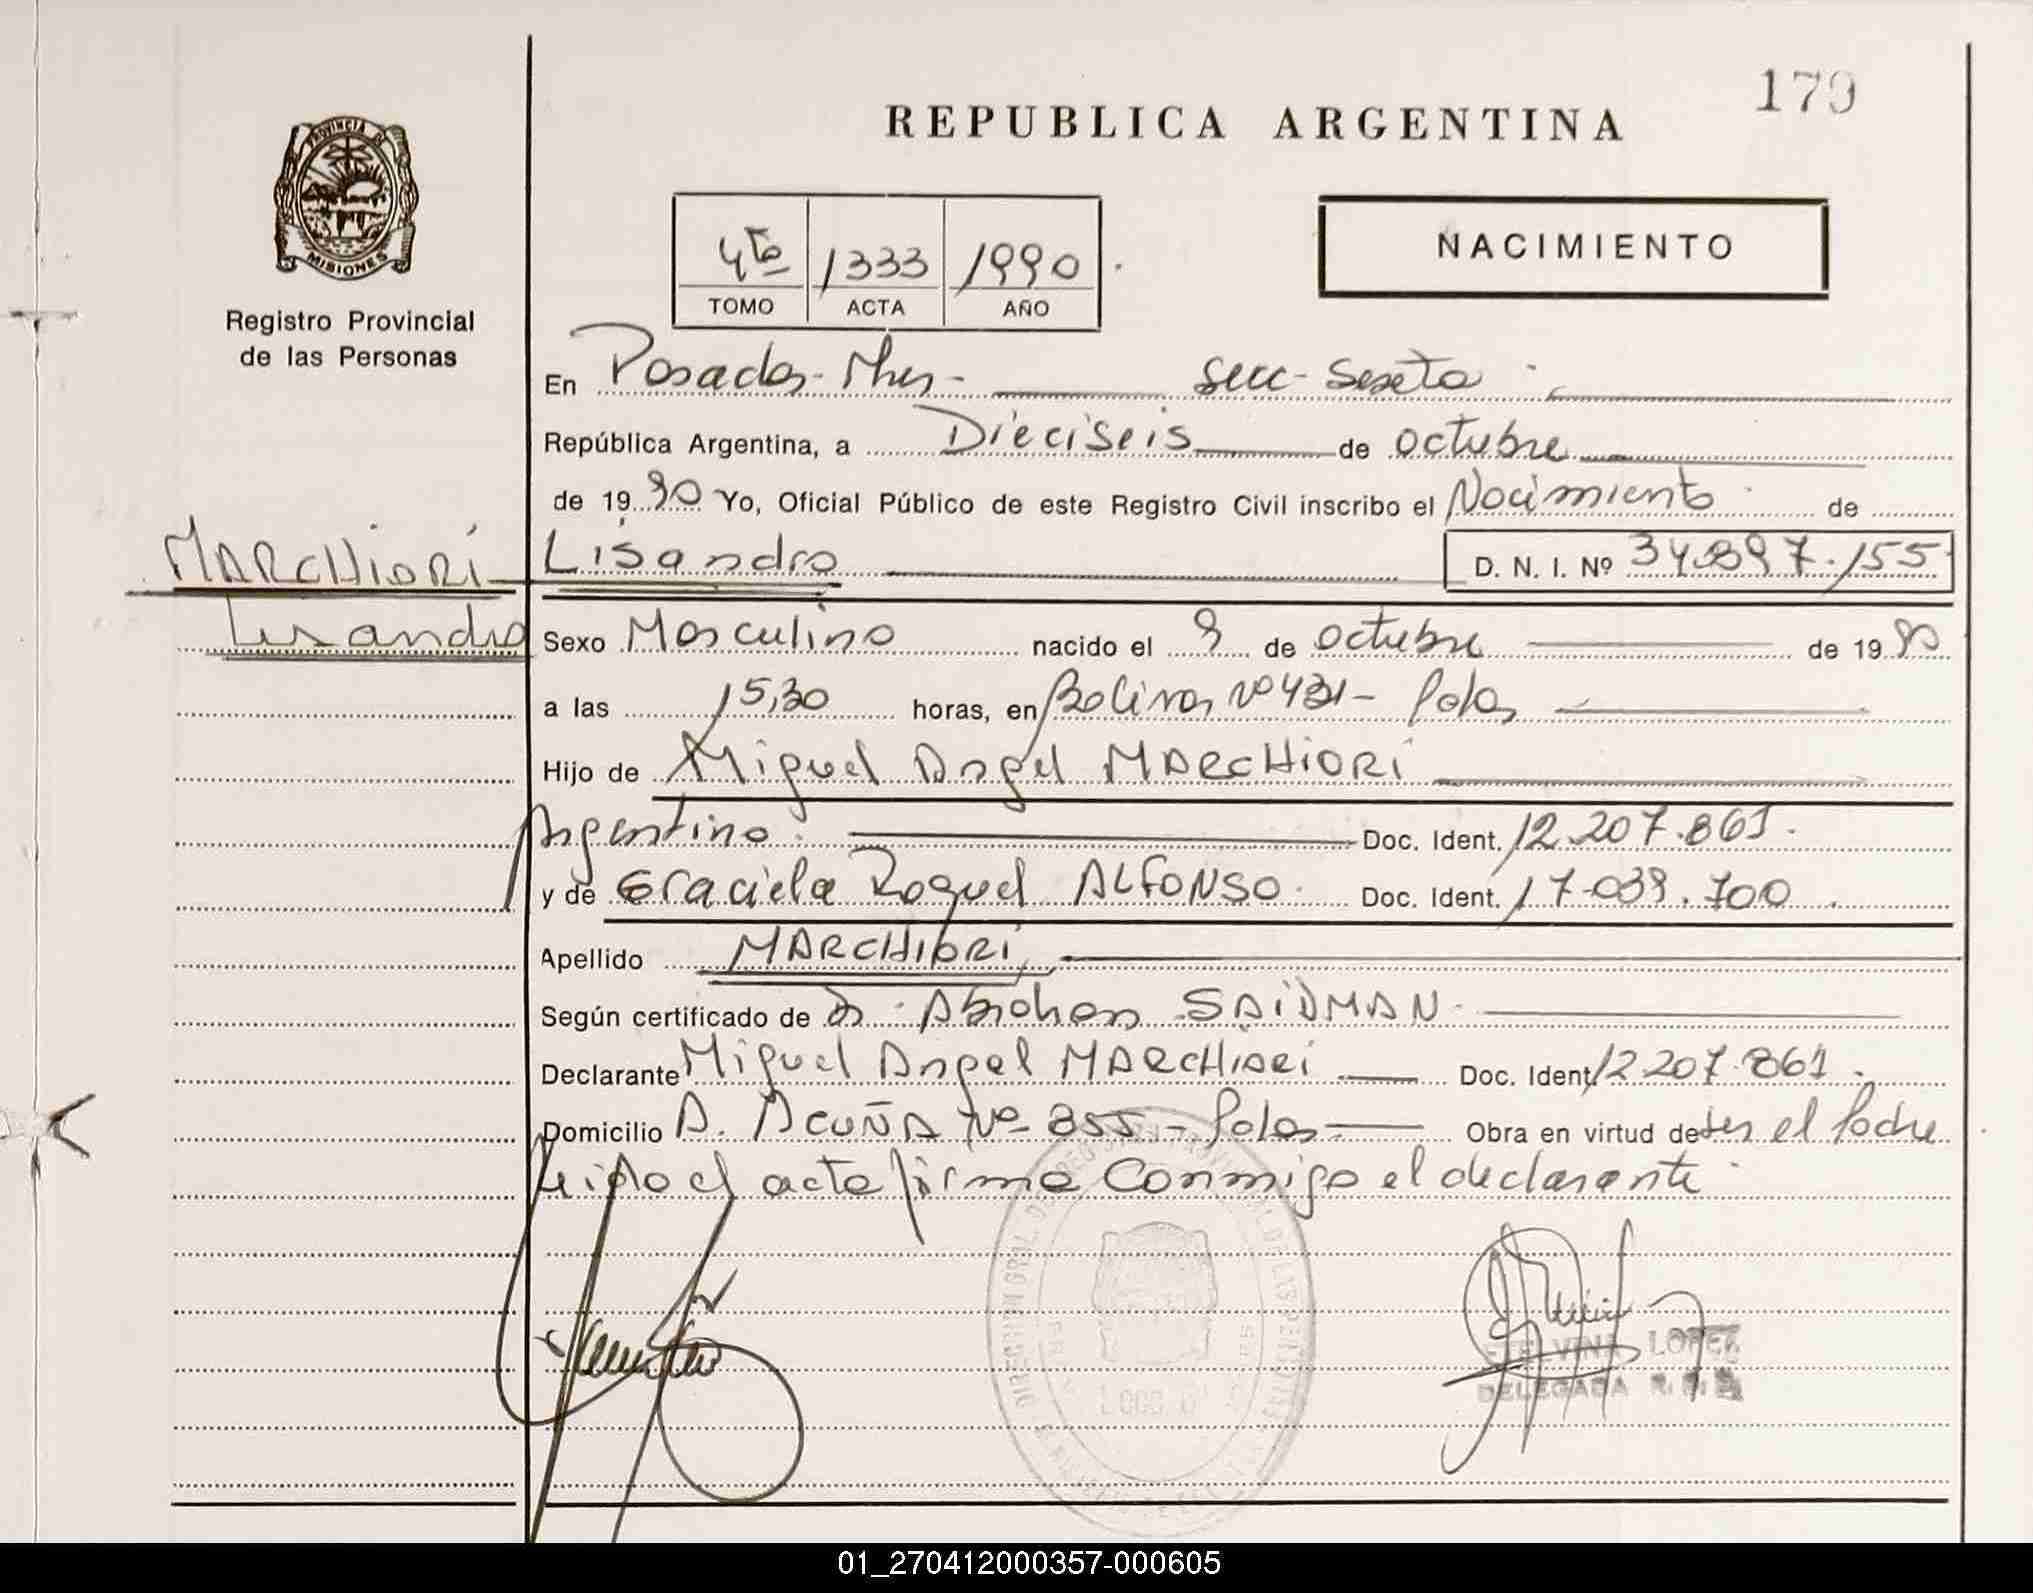 179
REPUBLICA ARGENTINA
PROVINCIA DE
MISIONES
Registro Provincial
de las Personas
4to 1333 1990
TOMO ACTA AÑO
NACIMIENTO
En Posadas - Mnes - Secc - Sexta
República Argentina, a Dieciseis de octubre
de 1990 Yo, Oficial Público de este Registro Civil inscribo el Nacimiento de
MARCHIORI Lisandro D. N. I. Nº 34.897.155
Lisandro Sexo Masculino nacido el 9 de octubre de 1990
a las 15,30 horas, en Bolivar Nº 431 - Pdas
Hijo de Miguel Angel MARCHIORI
Argentino. Doc. Ident. 12.207.861.
y de Graciela Raquel ALFONSO. Doc. Ident. 17.039.700.
Apellido MARCHIORI,
Según certificado de Dr. Abraham SAIDMAN -
Declarante Miguel Angel MARCHIORI Doc. Ident. 12.207.861.
Domicilio A. ACUÑA Nº 355 - Pdas - Obra en virtud de ser el Padre
Leido el acta firma conmigo el declarante
ETELVINA LOPEZ
DELEGADA R. P.
01_270412000357-000605